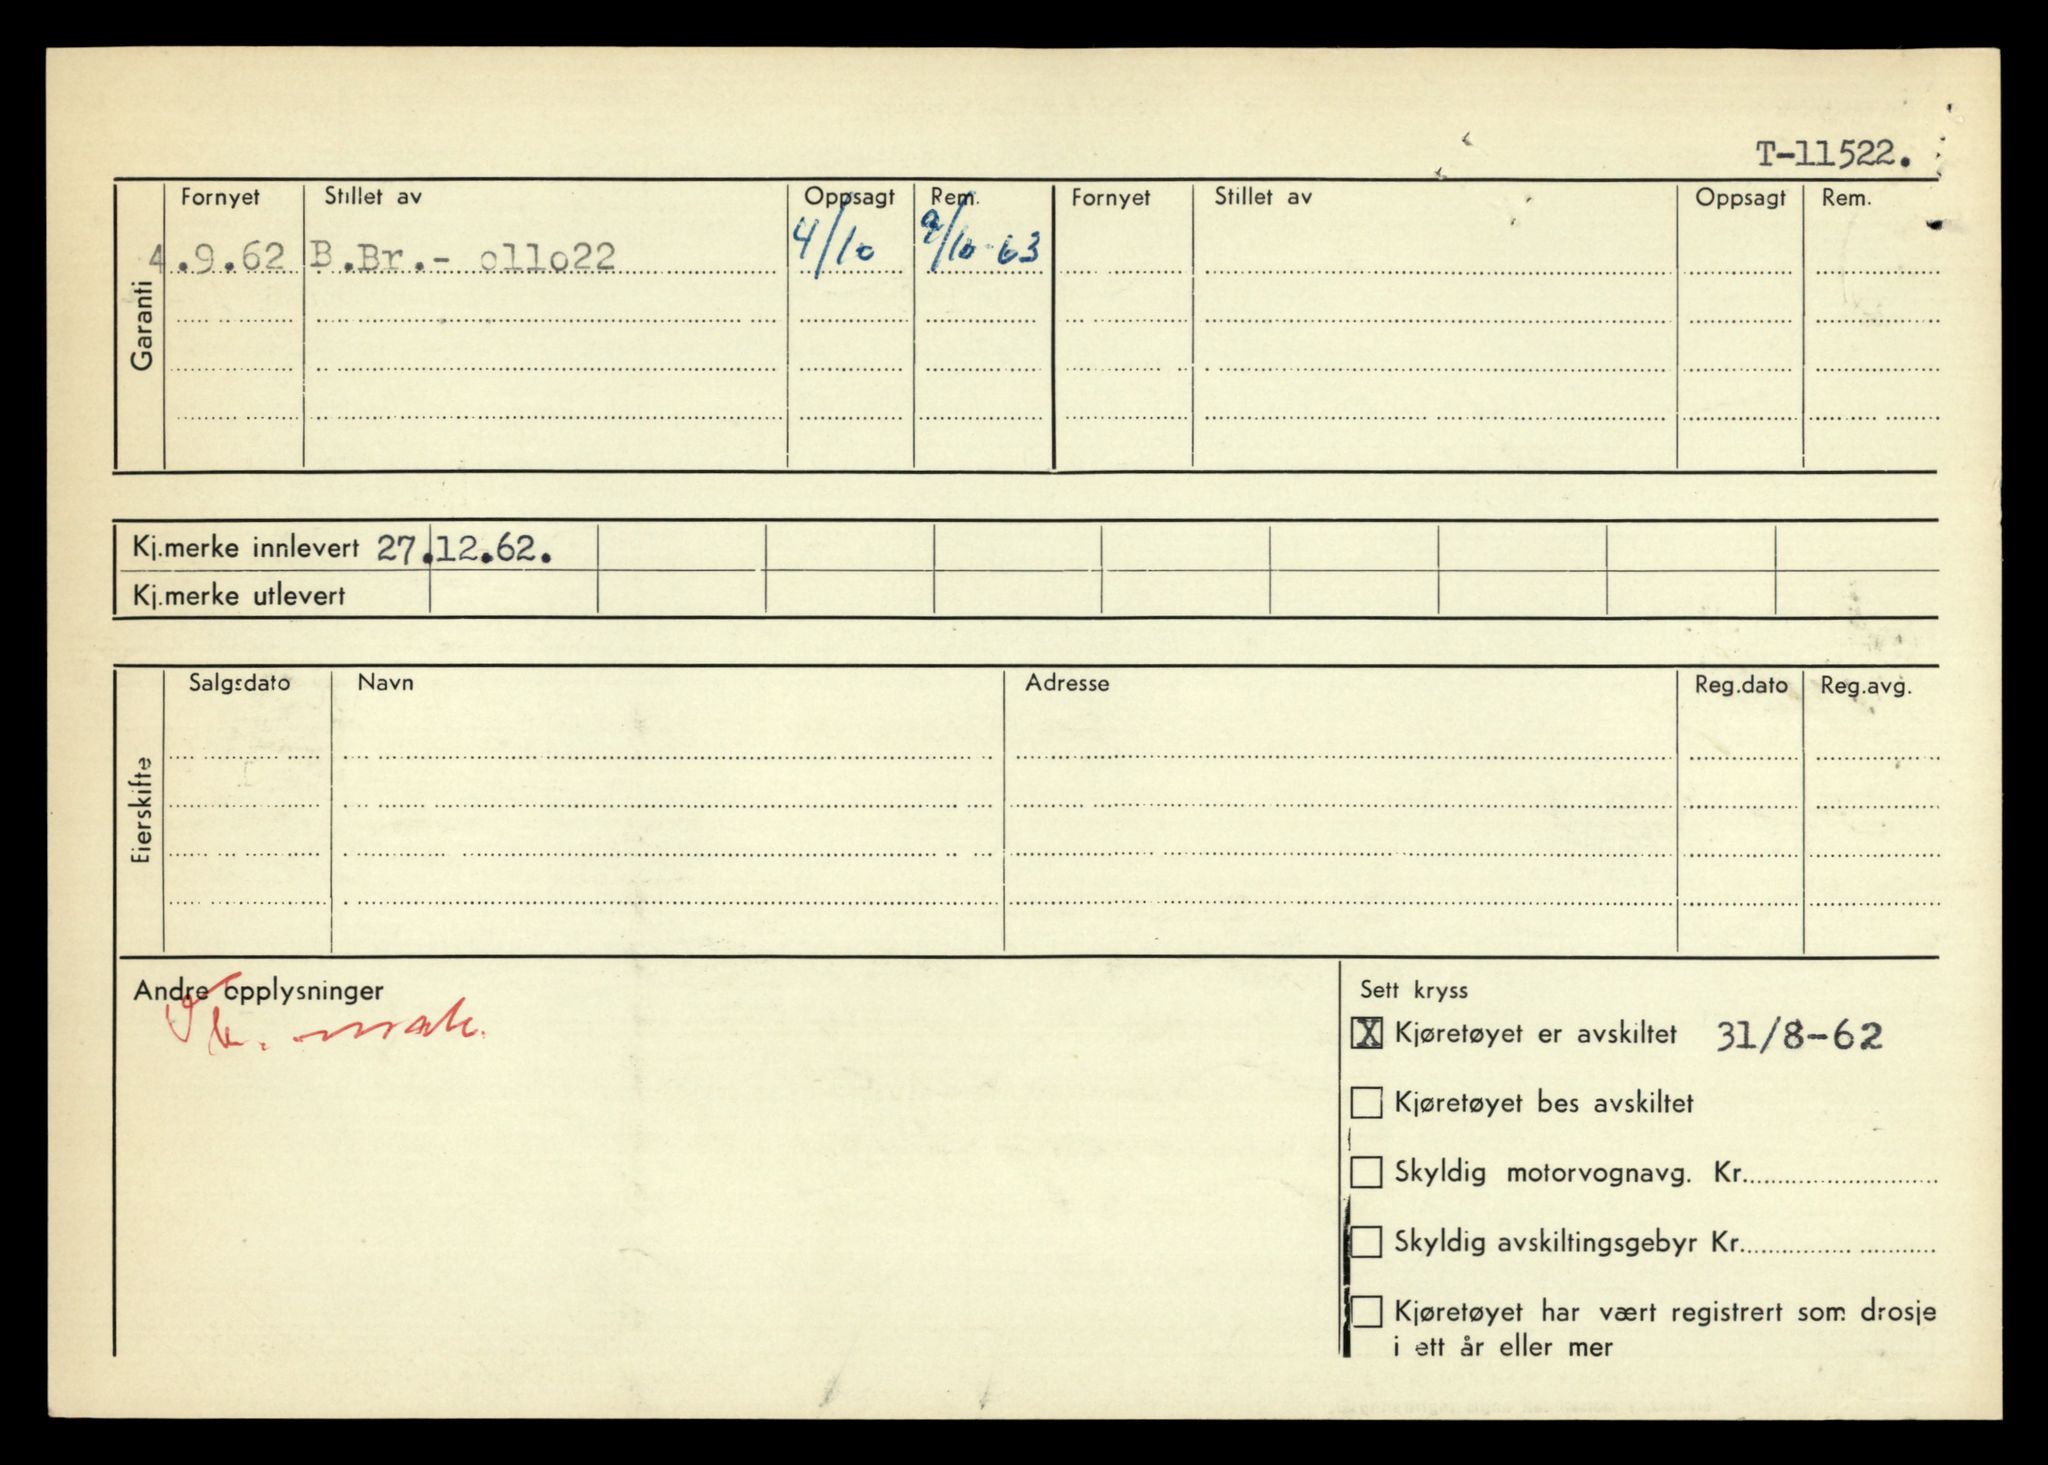 T-11522.
Garanti
Fornyet Stillet av Oppsagt Rem. Fornyet Stillet av Oppsagt Rem.
4.9.62 B.Br.- ollo22 4/10 9/10-63
Kj.merke innlevert 27.12.62.
Kj.merke utlevert
Eierskifte
Salgsdato Navn Adresse Reg.dato Reg.avg.
Andre opplysninger
Sett kryss
X Kjøretøyet er avskiltet 31/8-62
Kjøretøyet bes avskiltet
Skyldig motorvognavg. Kr.
Skyldig avskiltingsgebyr Kr.
Kjøretøyet har vært registrert som drosje
i ett år eller mer